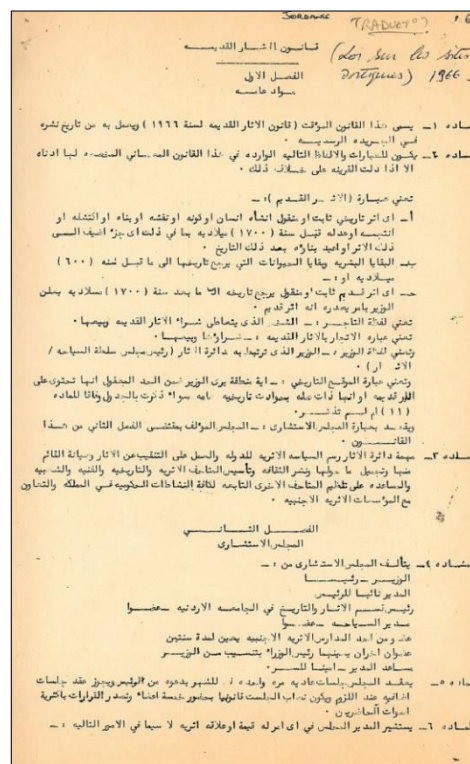 JORDANIE
TRADUCT°?
قانون الاثار القديمه
(Loi sur les sites
1966
الفصل الاول
مواد عامه
ماده ١ـ يسمى هذا القانون المؤقت (قانون الاثار القديمه لسنة ١٩٦٦) ويعمل به من تاريخ نشره
في الجريده الرسميه ٠
ماده ٢ـ يكون للعبارات والالفاظ التاليه الوارده في هذا القانون المعاني المخصصه لها ادناه
الا اذا دلت القرينه على خلاف ذلك ٠
تعني عبارة (الاثر القديم) :ـ
أ ـ اى اثر تاريخي ثابت او منقول انشأه انسان او كونه او نقشه او بناه او اكتشفه او
انتجه او عدله قبل سنة (١٧٠٠) ميلاديه بما في ذلك اى جزء اضيف الى
ذلك الاثر او اعيد بناؤه بعد ذلك التاريخ ٠
ب ـ البقايا البشريه وبقايا الحيوانات التي يرجع تاريخها الى ما قبل سنة (٦٠٠)
ميلاديه او :ـ
جـ ـ اى اثر قديم ثابت او منقول يرجع تاريخه الى ما بعد سنة (١٧٠٠) ميلاديه يعلن
الوزير بامر يصدره انه اثر قديم ٠
تعني لفظة التاجر :ـ الشخص الذى يتعاطى شراء الاثار القديمه وبيعها ٠
تعني عباره الاتجار بالاثار القديمه :ـ شراؤها وبيعها ٠
وتعني لفظة الوزير :ـ الوزير الذى ترتبط به دائرة الاثار (رئيس مجلس سلطة السياحه /
الاثار) ٠
وتعني عبارة الموقع التاريخي :ـ اية منطقة يرى الوزير ضمن الحد المعقول انها تحتوى على
اثار قديمه او انها ذات صله بحوادث تاريخيه هامه سواء ذكرت بالجدول وفاقا للماده
(١١) ام لم تذكر ٠
ويقصد بعبارة المجلس الاستشارى :ـ المجلس المؤلف بمقتضى الفصل الثاني من هذا
القانون ٠
ماده ٣ـ مهمة دائرة الاثار رسم السياسه الاثريه للدوله والعمل على التنقيب عن الاثار وصيانة القائم
منها وتجميل ما حولها ونشر الثقافه وتأسيس المتاحف الاثريه والتاريخيه والفنيه والشعبيه
والمساعده على تنظيم المتاحف الاخرى التابعه لكافة النشاطات الحكوميه في المملكه والتعاون
مع المؤسسات الاثريه الاجنبيه ٠
الفصل الثاني
المجلس الاستشارى
ماده ٤ـ يتألف المجلس الاستشارى من :ـ
الوزير ـ رئيسا
المدير نائبا للرئيس
رئيس قسم الاثار والتاريخ في الجامعه الاردنيه ـ عضوا
مدير السياحه ـ عضوا
عضو من احد المدارس الاثريه الاجنبيه يعين لمدة سنتين
عضوان اخران يعينهما رئيس الوزراء بتنسيب من الوزير
مساعد المدير ـ امينا للسر ٠
ماده ٥ـ يعقد المجلس جلسات عاديه مره واحده في الشهر بدعوه من الرئيس ويجوز عقد جلسات
اضافيه عند اللزوم ويكون نصاب الجلسات قانونيا بحضور خمسة اعضاء وتصدر القرارات باكثرية
اصوات الحاضرين ٠
ماده ٦ـ يستشير المدير المجلس في اى امر له قيمة او علاقه اثريه لا سيما في الامور التاليه :ـ